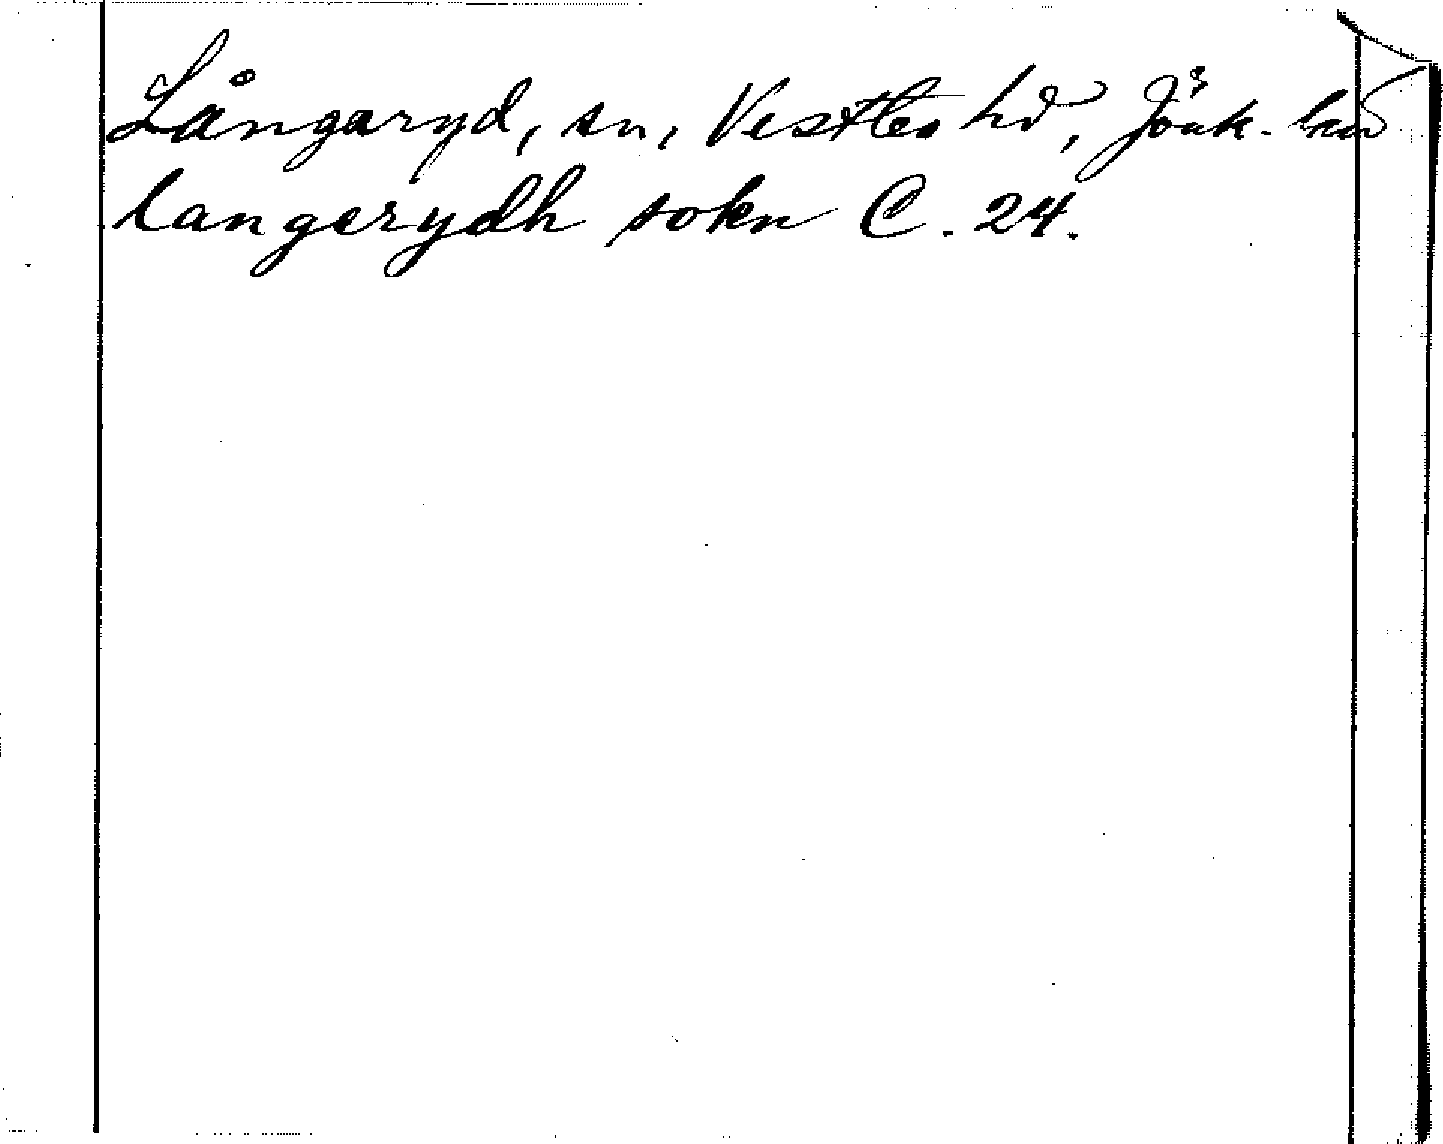 Långaryd, sn, Vestbo hd, Jönk. län
langerydh sokn C. 24.